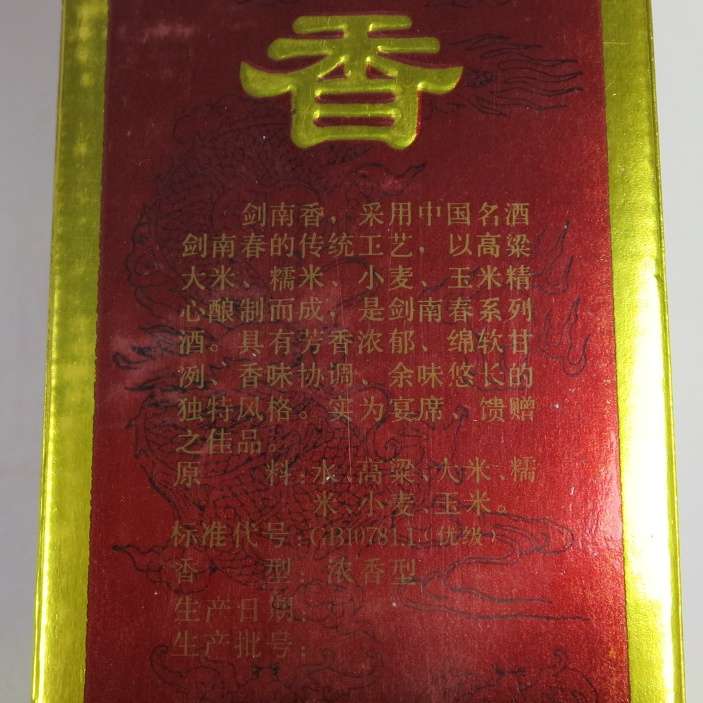 香
剑南香，采用中国名酒
剑南春的传统工艺，以高粱
大米、糯米、小麦、玉米精
心酿制而成，是剑南春系列
酒。具有芳香浓郁、绵软甘
冽、香味协调、余味悠长的
独特风格。实为宴席、馈赠
之佳品。
原 料：水、高粱、大米、糯
米、小麦、玉米。
标准代号：GB10781.1（优级）
香 型：浓香型
生产日期：
生产批号：